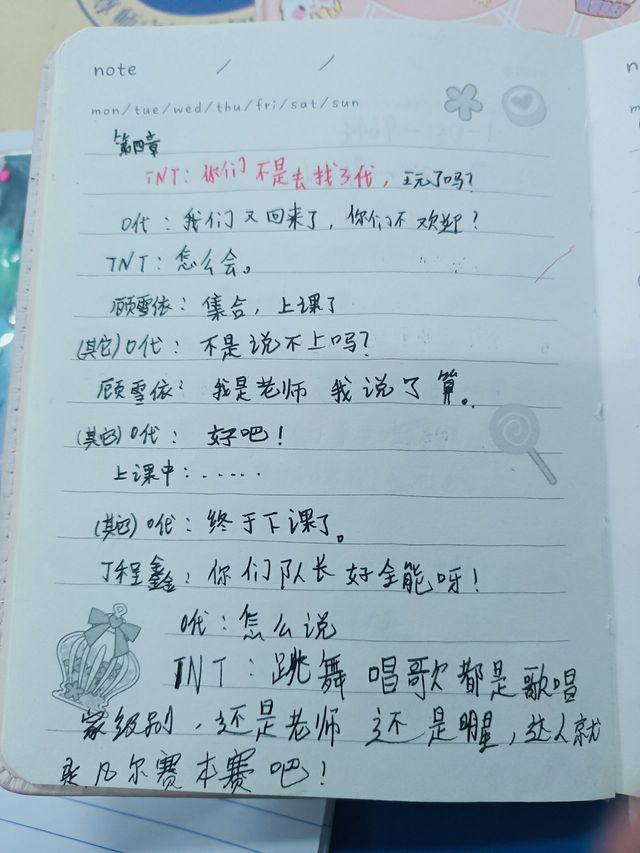 note / /
mon/tue/wed/thu/fri/sat/sun
第四章
TNT：你们不是去找了代，玩了吗？
0代：我们又回来了，你们不欢迎？
TNT：怎么会。
顾雪依：集合，上课了
(其它)0代：不是说不上吗？
顾雪依：我是老师 我说了算。
(其它)0代：好吧！
上课中：......
(其它)0代：终于下课了。
丁程鑫：你们队长好全能呀！
0代：怎么说
TNT：跳舞 唱歌都是歌唱
家级别，还是老师 还是明星，这人就
是凡尔赛本赛吧！